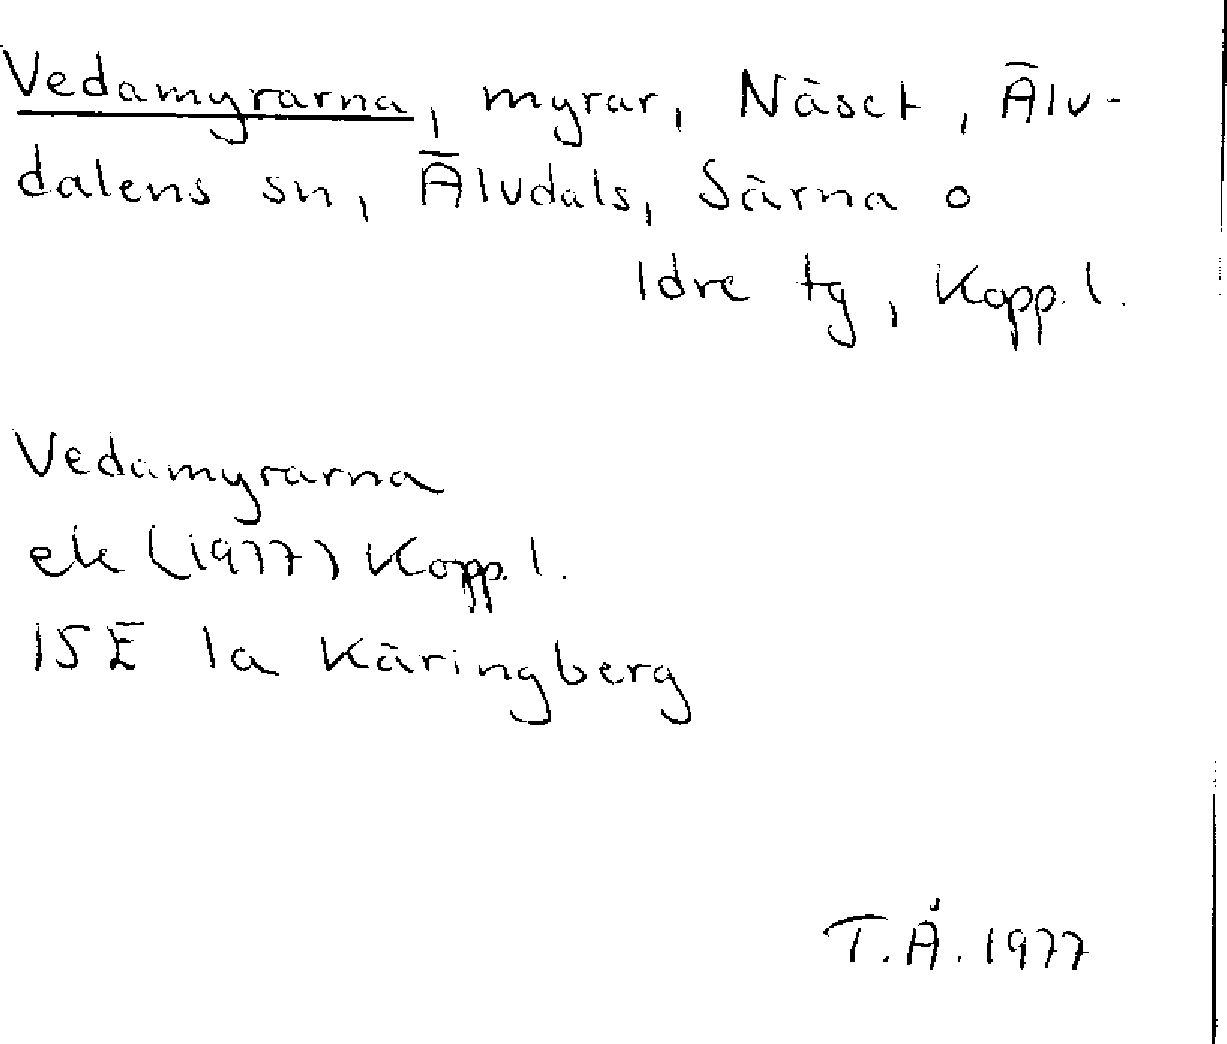 Vedamyrarna, myrar, Näset, Älv-
dalens sn, Älvdals, Särna o
Idre tg, Kopp. l.
Vedamyrarna
ek (1977) Kopp. l.
15E 1a Käringberg
T.Å. 1977